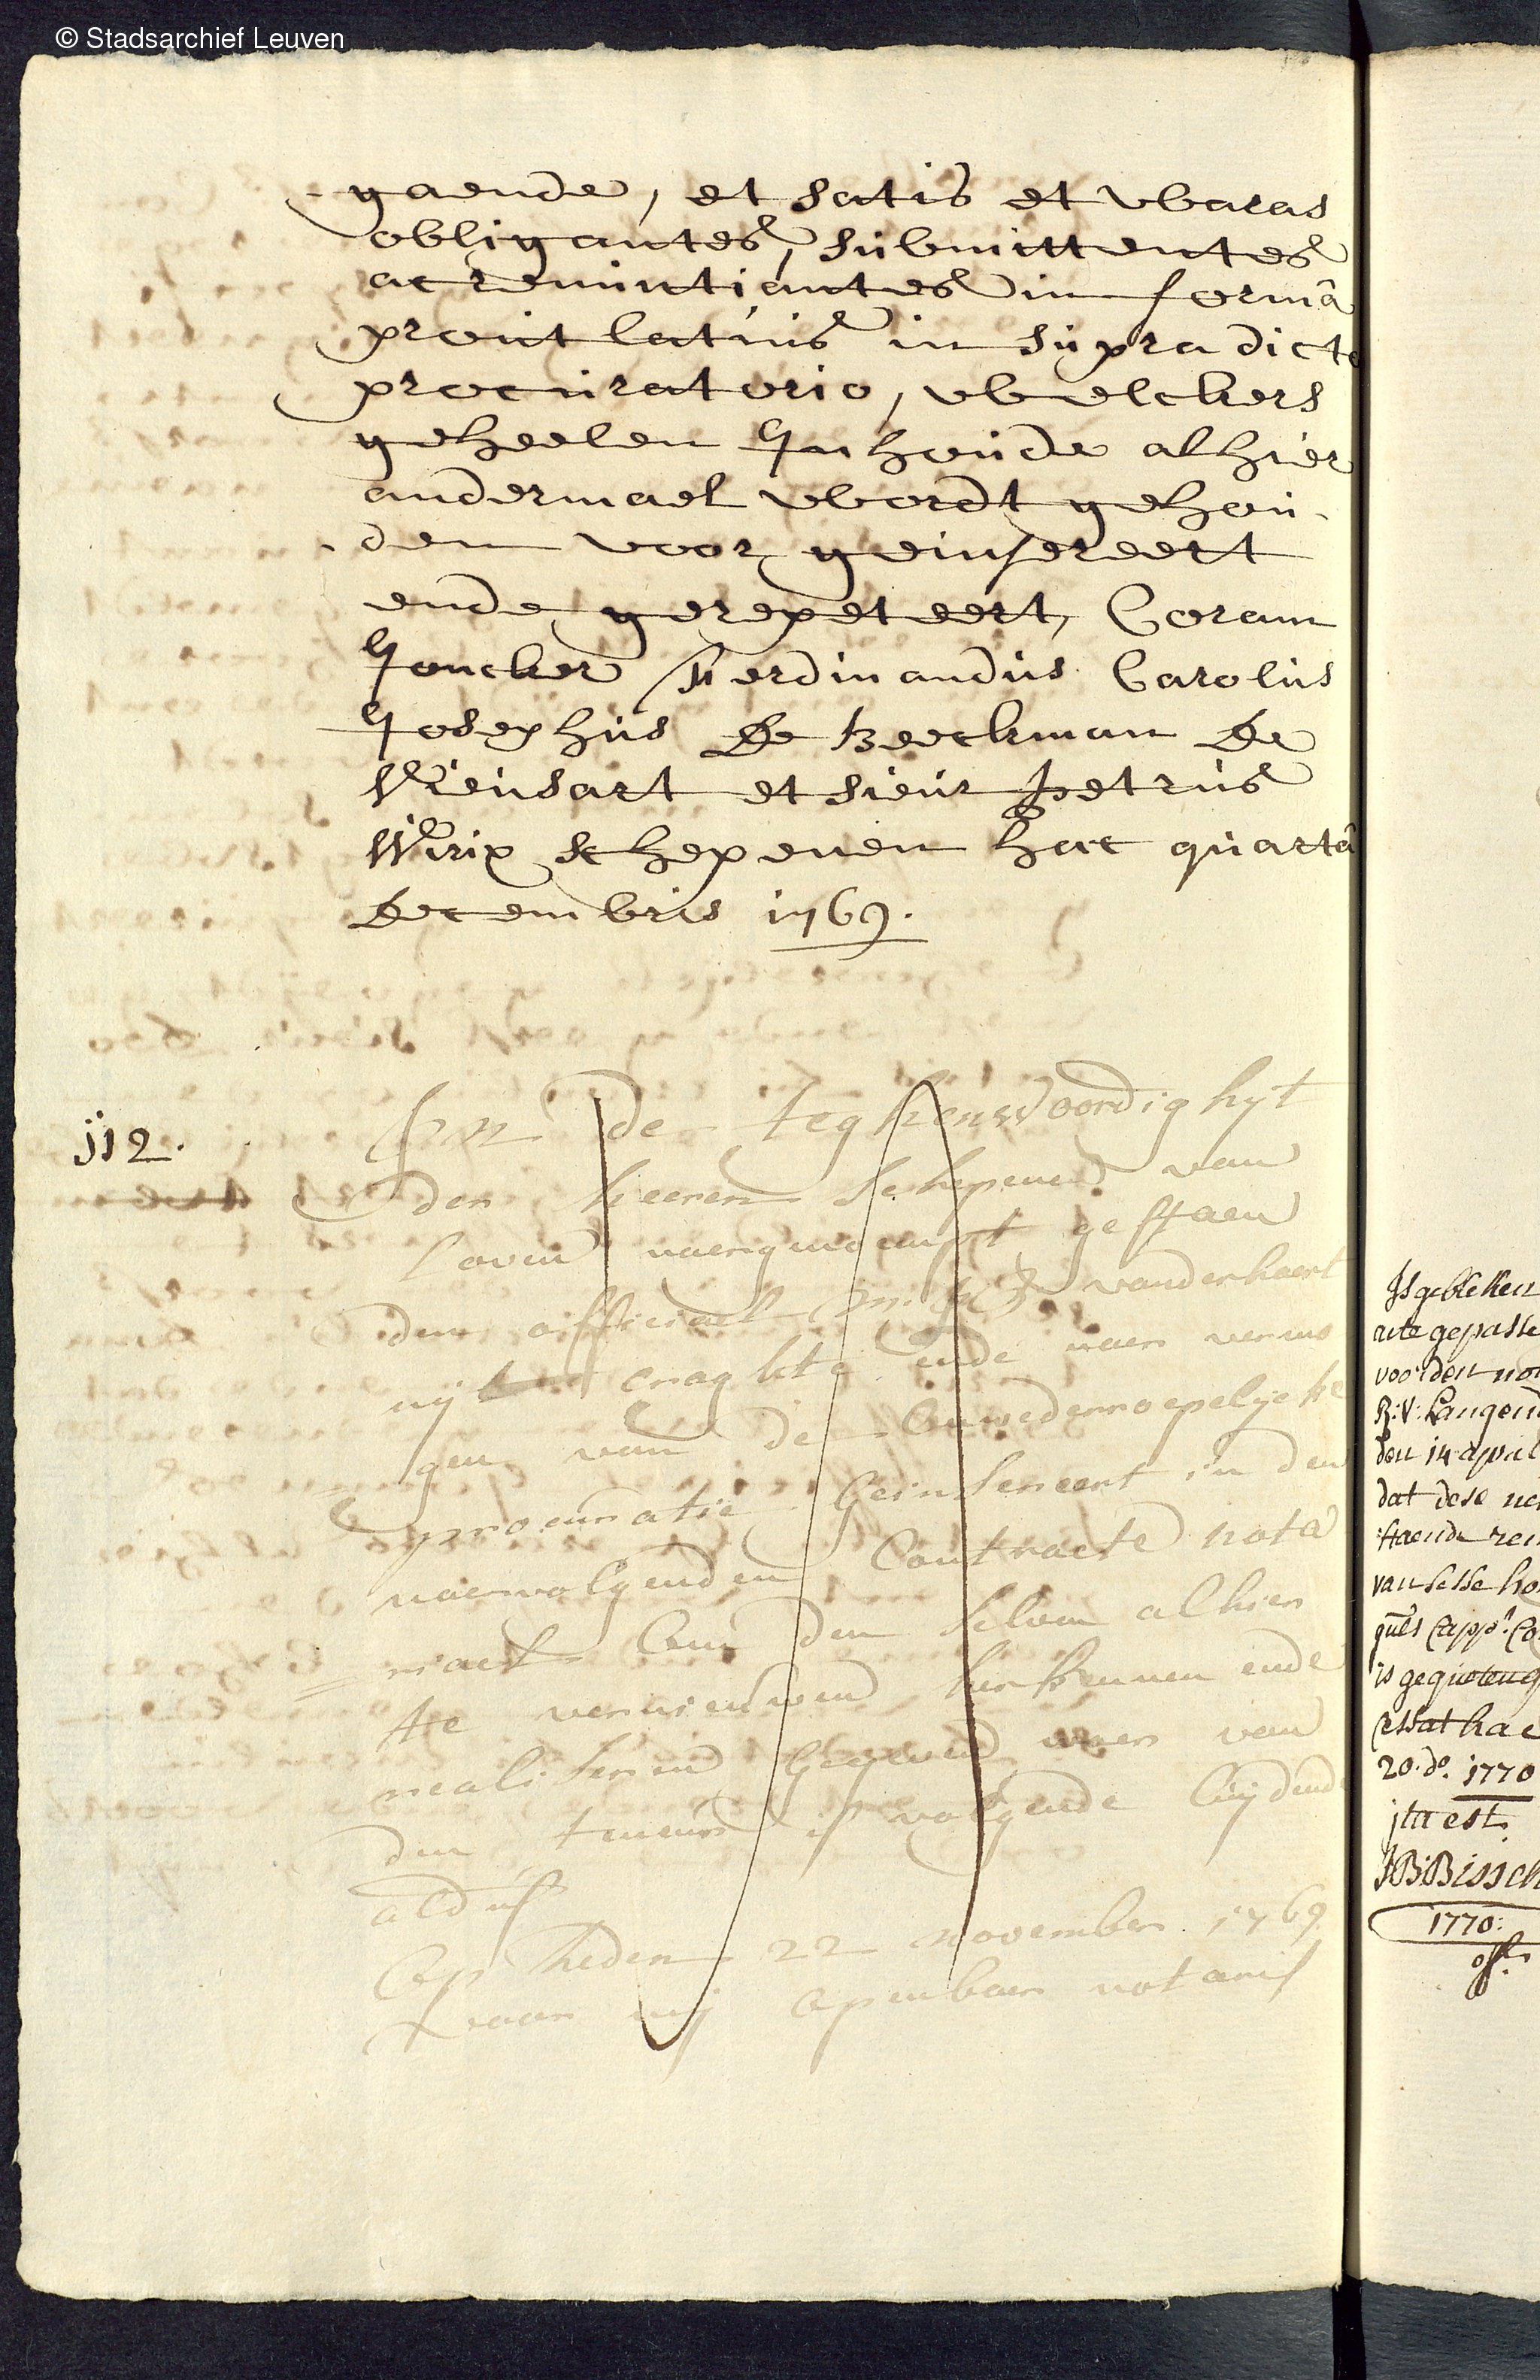 © Stadsarchief Leuven
-gaende, et satis et waras
obligantes, submittentes
ac renuntiantes in formâ
prout latius in supradicto
procuratorio, welckers
geheelen Inhoude alhier
andermael wordt gehou-
-den voor geinsereert
ende gerepeteert, Coram
Joncker Ferdinandus Carolus
Josephus De Beeckman De
Vieusart et sieur Petrus
Wirix schepenen hac quartâ
Decembris 1769.
j12.
In de teghenswoordighyt
der heeren schepenen van
loven naergenoempt gestaen
den officiael vanderhaert
uyt craghte ende naer vermo
gen van de onwederroepelycke
procuratie geinsereert in den
naervolgenden Contracte nota
riael om den selven alhier
te vernieuwen herkennen ende
realiseren gegeven waer van
den teneur is volgende luydende
aldus
Op heden 22 november 1769
voor mij openbaer notaris
Is gebleken
acte gepasse
voor den no
R: V: Langen
den 14 april
dat dese ne
staende ren
van sesse ho
is gequeten
essat hac
20. d.º 1770
jta est.
J B: Bissch
1770:
off.